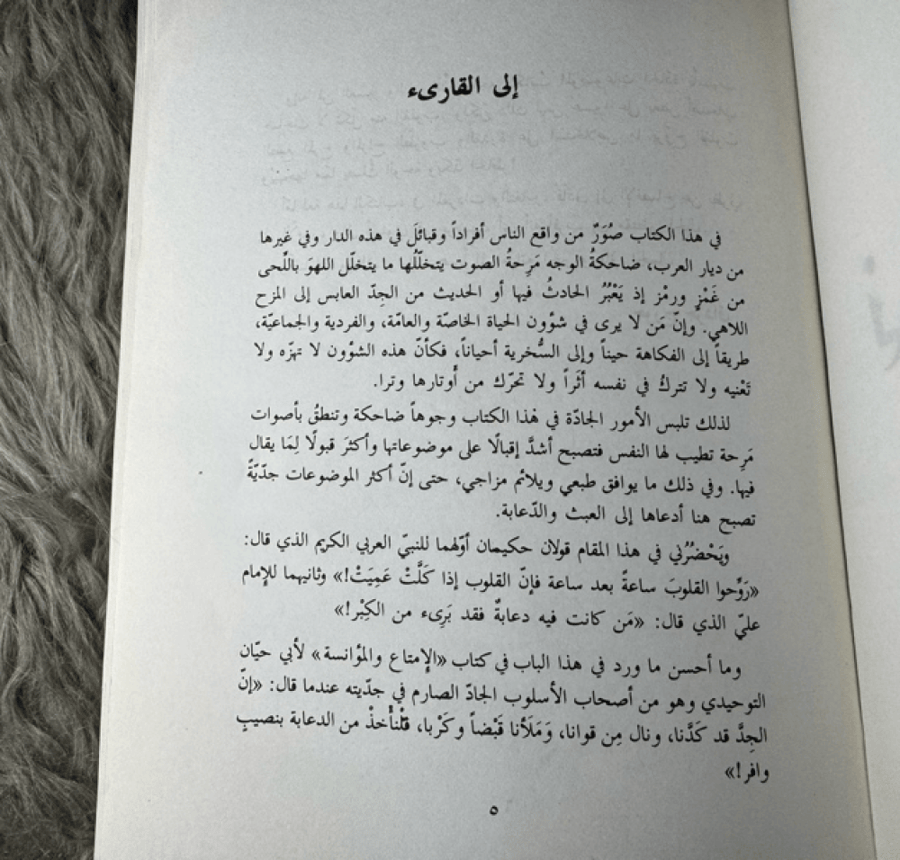 إلى القارىء
في هذا الكتاب صُوَرٌ من واقع الناس أفراداً وقبائلَ في هذه الدار وفي غيرها
من ديار العرب، ضاحكةُ الوجه مَرِحةُ الصوت يتخلّلُها ما يتخلّل اللهوَ باللِّحى
من غَمْزٍ ورمْز إذ يَعْبُرُ الحادثُ فيها أو الحديث من الجِدّ العابس إلى المزح
اللاهي. وإنّ مَن لا يرى في شؤون الحياة الخاصّة والعامّة، والفردية والجماعيّة،
طريقاً إلى الفكاهة حيناً وإلى السُّخرية أحياناً، فكأنّ هذه الشؤون لا تهزّه ولا
تَعْنيه ولا تتركُ في نفسه أثَراً ولا تحرّك من أوتارها وترا.
لذلك تلبس الأمور الجادّة في هٰذا الكتاب وجوهاً ضاحكة وتنطقُ بأصوات
مَرِحة تطيب لها النفس فتصبح أشدَّ إقبالًا على موضوعاتها وأكثرَ قبولًا لِمَا يقال
فيها. وفي ذلك ما يوافق طبعي ويلائم مزاجي، حتى إنّ أكثر الموضوعات جدّيّةً
تصبح هنا أدعاها إلى العبث والدّعابة.
ويَحْضُرُني في هذا المقام قولان حكيمان أوّلهما للنبيّ العربي الكريم الذي قال:
«رَوِّحوا القلوبَ ساعةً بعد ساعة فإنّ القلوب إذا كَلَّتْ عَمِيَتْ!» وثانيهما للإمام
عليّ الذي قال: «مَن كانت فيه دعابةٌ فقد بَرِىء من الكِبْر!»
وما أحسن ما ورد في هذا الباب في كتاب «الإمتاع والمؤانسة» لأبي حيّان
التوحيدي وهو من أصحاب الأسلوب الجادّ الصارم في جدّيته عندما قال: «إنّ
الجِدَّ قد كَدَّنا، ونال مِن قوانا، وَمَلأنا قَبْضاً وكَرْبا، فَلْنأخذْ من الدعابة بنصيبٍ
وافر!»
٥